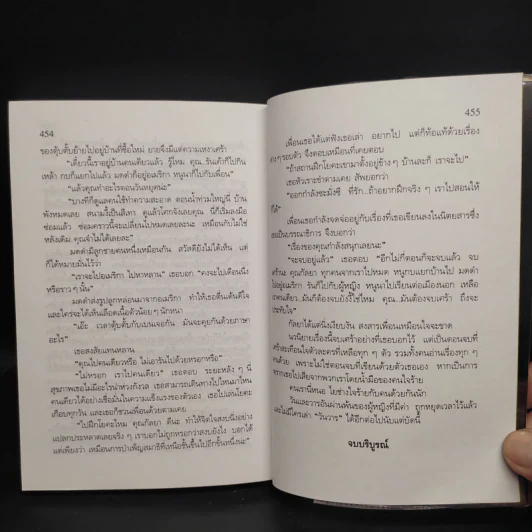 454
ของตุ้บตั้บย้ายไปอยู่บ้านที่ซื้อใหม่ ยายจึงมีแต่ความเหงาเศร้า
"เดี๋ยวนี้เราอยู่บ้านคนเดียวแล้ว รู้ไหม คุณ..รันเค้าก็ไปกิน
เหล้า กบก็แยกไปแล้ว มดดำก็อยู่อเมริกา หนูนาก็ไปกับเพื่อน"
"แล้วคุณทำอะไรตอนวันหยุดน่ะ"
"บางทีก็ดูแลคนใช้ทำความสะอาด ตอนน้ำท่วมใหญ่นี่ บ้าน
พังหมดเลย สนามงี้เป็นสีเทา ดูแล้วโศกจังเลยคุณ นี่ก็เริ่มลงมือ
ซ่อมแล้ว ซ่อมคราวนี้จะเปลี่ยนไปหมดทุกอย่างเลยละนะ เหมือนกับไม่ใช่
หลังเดิม คุณจำไม่ได้เลยละ"
มดดำมีลูกชายคนหนึ่งเหมือนกัน สวัสดียังไม่ได้เห็น แต่
ก็ได้หมายมั่นไว้ว่า
"เราจะไปอเมริกา ไปหาหลาน" เธอบอก "คงจะไปเดือนนึง
หรือราว ๆ นั้น"
มดดำส่งรูปลูกหล่อนมาจากอเมริกา ทำให้เธอตื่นเต้นดีใจ
และใคร่จะได้เห็นเลือดเนื้อตัวน้อย ๆ นักหนา
"เอ๊ะ เวลาตุ้บตั้บกับเบนเจอกัน มันจะคุยกันด้วยภาษา
อะไร"
เธอสงสัยแทนหลาน
"คุณไปคนเดียวหรือ ไม่เอารันไปด้วยหรอกหรือ"
"ไม่หรอก เราไปคนเดียว" เธอตอบ ระยะหลัง ๆ นี่
สุขภาพเธอไม่มีอะไรน่าห่วงกังวล เธอสามารถเดินทางไปไหนมาไหน
คนเดียวได้อย่างเชื่อมั่นในความแข็งแรงของตัวเอง เธอไปเล่นโยคะ
เกือบทุกวัน และเธอก็ชวนเพื่อนด้วยตามเคย
"ไปฝึกโยคะไหม คุณกัลยา ดีนะ ทำให้จิตใจสงบนิ่งอย่าง
แปลกประหลาดเลยจริง ๆ เราบอกไม่ถูกหรอกว่าสงบยังไง บอกได้
แต่เพียงว่า เหมือนการบำเพ็ญสมาธิที่เหนือชั้นขึ้นไปอีกขั้นหนึ่งน่ะ"
455
เพื่อนเธอได้แต่ฟังเธอเล่า อยากไป แต่ก็ท้อแท้ด้วยเรื่อง
ต่าง ๆ รอบตัว จึงตอบเหมือนที่เคยตอบ
"ถ้าสถานฝึกโยคะเขามาตั้งอยู่ข้าง ๆ บ้านละก็ เราจะไป"
เธอหัวเราะขำตามเคย สัพยอกว่า
"ออกกำลังซะมั่งซี ที่รัก..ถ้าอยากฝึกจริง ๆ เราไปสอนให้
ก็ได้"
เพื่อนเธอกำลังจดจ่ออยู่กับเรื่องที่เธอเขียนลงในนิตยสารซึ่ง
เธอเป็นบรรณาธิการ จึงบอกว่า
"เรื่องของคุณกำลังสนุกเลยนะ"
"จะจบอยู่แล้ว" เธอตอบ "อีกไม่กี่ตอนก็จะจบแล้ว จบ
ตรีนะ คุณกัลยา ทุกคนจากเราไปหมด หนูกบแยกบ้านไป มดดำ
ไปอยู่อเมริกา รันก็ไปกับผู้หญิง หนูนาไปเรียนต่อเมืองนอก เหลือเรา
คนเดียว..มันก็ต้องจบยังงี้ใช่ไหม คุณ..มันต้องจบเศร้า ถึงจะ
ประทับใจ"
กัลยาได้แต่นิ่งเงียบงัน สงสารเพื่อนเหมือนใจจะขาด
นวนิยายเรื่องนี้จบเศร้าอย่างที่เธอบอกไว้ แต่เป็นตอนจบที่
เศร้าสะเทือนใจตัวละครที่เหลือทุก ๆ ตัว รวมทั้งคนอ่านเรื่องทุก ๆ
คนด้วย เพราะไม่ใช่ตอนจบที่เขียนด้วยตัวเธอเอง หากเป็นการ
จากที่เธอไปเสียจากพวกเราโดยน้ำมือของคนใจร้าย
คนเรานี่หนอ ใยช่างใจร้ายกับคนด้วยกันนัก
วันและวารอันผ่านพ้นของผู้หญิงที่มีค่า ถูกหยุดเวลาไว้แล้ว
และไม่มีใครเล่า "วันวาร" ได้อีกต่อไปนับแต่บัดนี้
จบบริบูรณ์